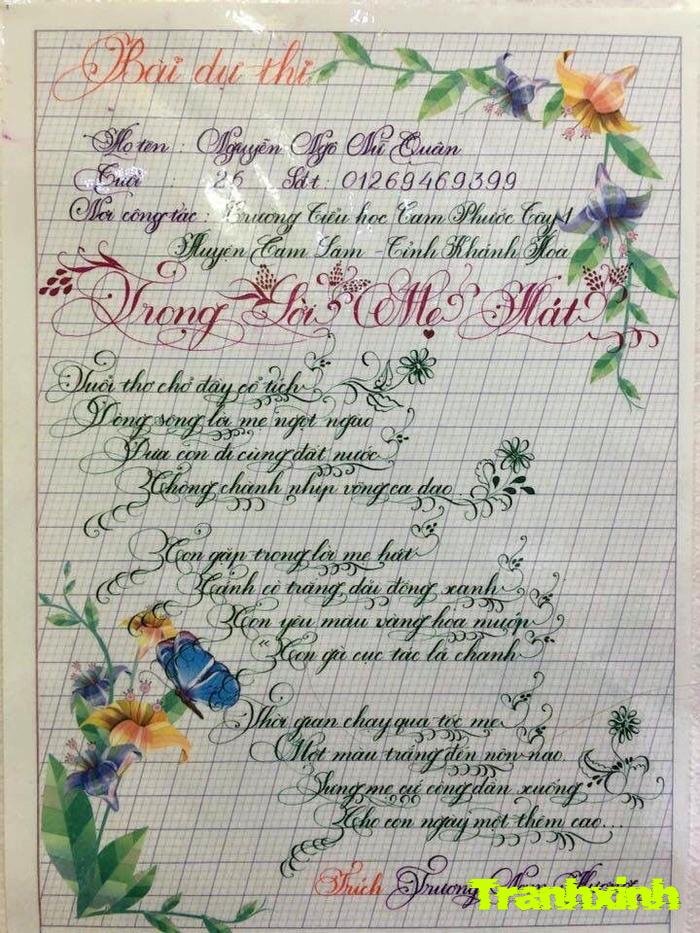 Bài dự thi
Họ tên : Nguyễn Ngô Nữ Quân
Tuổi 26 Sđt : 01269469399
Nơi công tác : Trường Tiểu học Cam Phước Tây 1
Huyện Cam Lam - Tỉnh Khánh Hoa
Trong Lời Mẹ Hát
Tuổi thơ chở đầy cổ tích
Dòng sông lời mẹ ngọt ngào
Đưa con đi cùng đất nước
Chòng chành nhịp võng ca dao
Con gặp trong lời mẹ hát
Cánh cò trắng dải đồng xanh
Con yêu màu vàng hoa mướp
"Con gà cục tác lá chanh
Thời gian chạy qua tóc mẹ
Một màu trắng đến nôn nao
Lưng mẹ cứ còng dần xuống
Cho con ngày một thêm cao...
Trích Trương Nam Hương
Tranhxinh